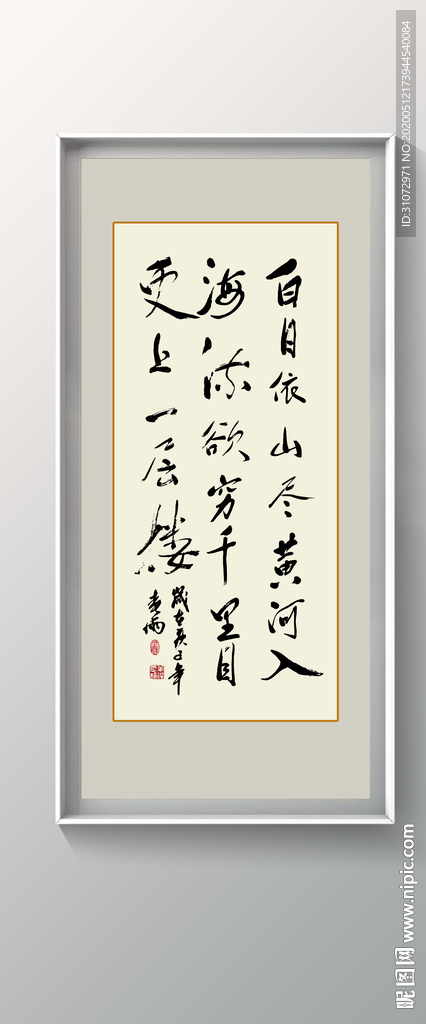 白日依山尽黄河入
海流欲穷千里目
更上一层楼
歲在庚子年
ID:31072971 NO:20200512173944540084
昵图网 www.nipic.com